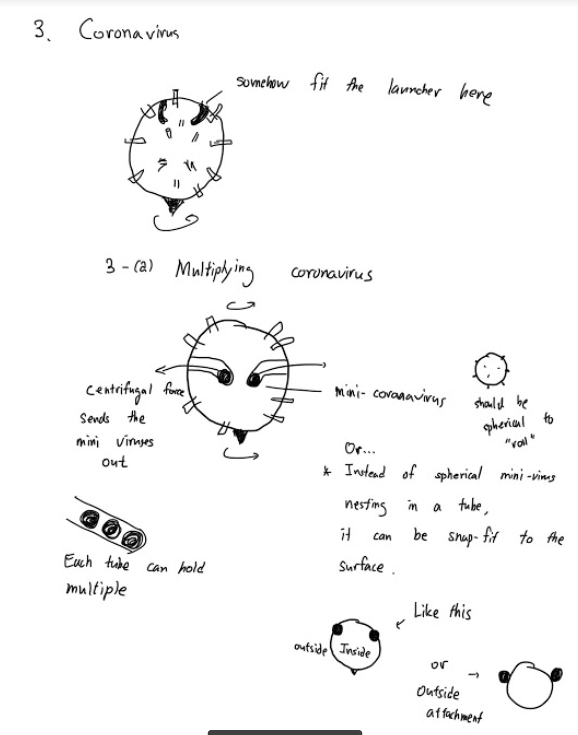 3. Coronavirus
somehow fit the launcher here
3-(a) Multiplying coronavirus
Centrifugal force
sends the
mini viruses
out
mini-coronavirus
should be
spherical to
"roll"
Or...
* Instead of spherical mini-virus
nesting in a tube,
it can be snap-fit to the
surface.
Each tube can hold
multiple
Like this
outside Inside
or
outside
attachment